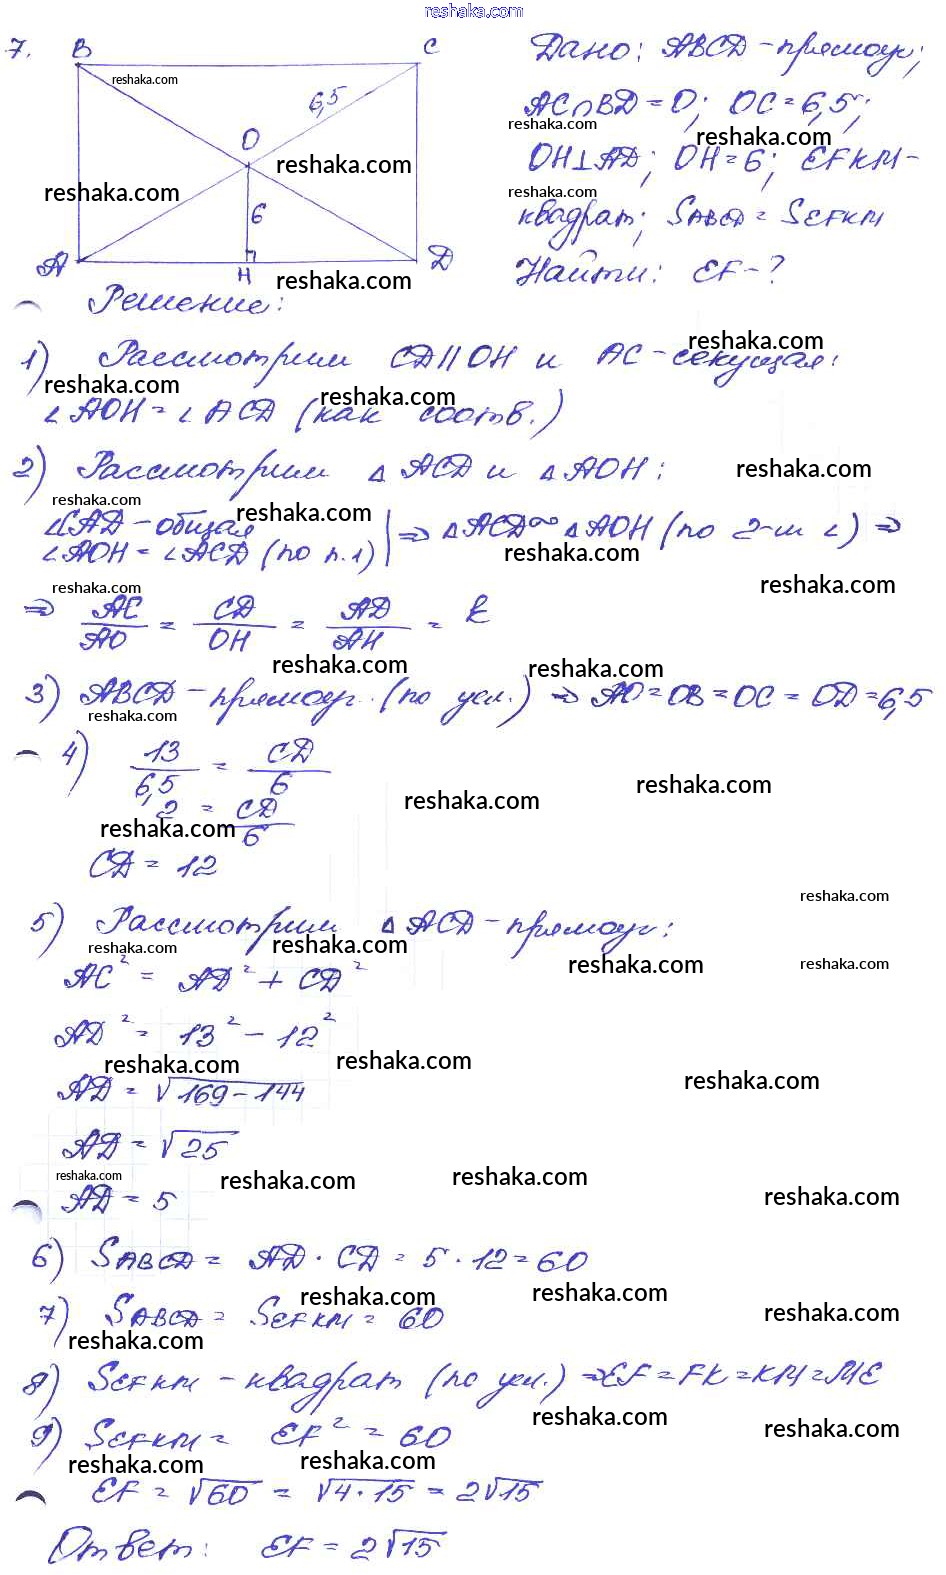 reshaka.com
7.
B
C
6,5
O
6
A
H
D
Дано: ABCD - прямоуг;
AC∩BD = O; OC = 6,5;
OH⊥AD; OH = 6; EFKM -
квадрат; SABCD = SEFKM
Найти: EF - ?
Решение:
1) Рассмотрим CD || OH и AC - секущая:
∠AOH = ∠ACD (как соотв.)
2) Рассмотрим △ACD и △AOH:
∠CAD - общая
∠AOH = ∠ACD (по п.1) | ⇒ △ACD ∞ △AOH (по 2-м ∠) ⇒
⇒ AC/AO = CD/OH = AD/AH = k
3) ABCD - прямоуг. (по усл.) ⇒ AO = OB = OC = OD = 6,5
4) 13/6,5 = CD/6
2 = CD/6
CD = 12
5) Рассмотрим △ACD - прямоуг:
AC² = AD² + CD²
AD² = 13² - 12²
AD = √169-144
AD = √25
AD = 5
6) SABCD = AD · CD = 5 · 12 = 60
7) SABCD = SEFKM = 60
8) SEFKM - квадрат (по усл.) ⇒ EF = FK = KM = ME
9) SEFKM = EF² = 60
EF = √60 = √4·15 = 2√15
Ответ: EF = 2√15